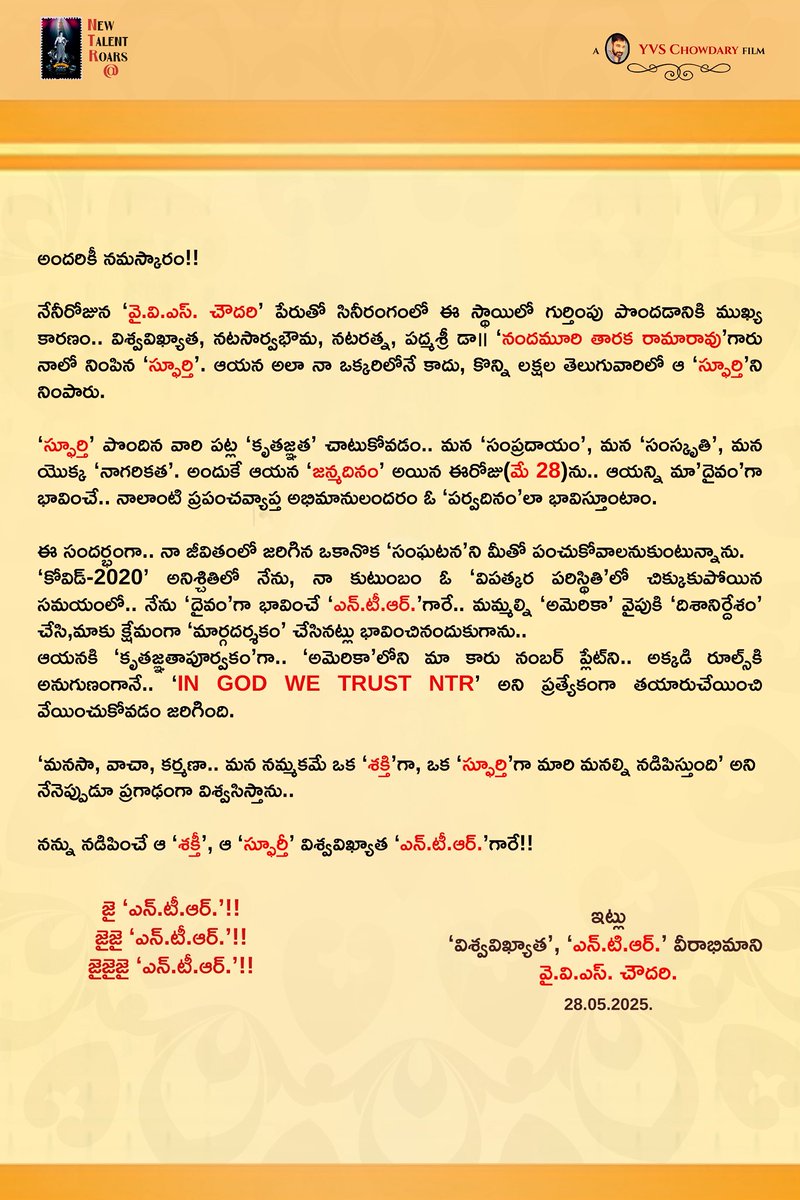 NEW
TALENT
ROARS
@
A YVS CHOWDARY FILM
అందరికీ నమస్కారం!!
నేనీరోజున ‘వై.వి.ఎస్. చౌదరి’ పేరుతో సినీరంగంలో ఈ స్థాయిలో గుర్తింపు పొందడానికి ముఖ్య
కారణం.. విశ్వవిఖ్యాత, నటసార్వభౌమ, నటరత్న, పద్మశ్రీ డా॥ ‘నందమూరి తారక రామారావు’గారు
నాలో నింపిన ‘స్ఫూర్తి’. ఆయన అలా నా ఒక్కరిలోనే కాదు, కొన్ని లక్షల తెలుగువారిలో ఆ ‘స్ఫూర్తి’ని
నింపారు.
‘స్ఫూర్తి’ పొందిన వారి పట్ల ‘కృతజ్ఞత’ చాటుకోవడం.. మన ‘సంప్రదాయం’, మన ‘సంస్కృతి’, మన
యొక్క ‘నాగరికత’. అందుకే ఆయన ‘జన్మదినం’ అయిన ఈరోజు(మే 28)ను.. ఆయన్ని మా’దైవం’గా
భావించే.. నాలాంటి ప్రపంచవ్యాప్త అభిమానులందరం ఓ ‘పర్వదినం’లా భావిస్తూంటాం.
ఈ సందర్భంగా.. నా జీవితంలో జరిగిన ఒకానొక ‘సంఘటన’ని మీతో పంచుకోవాలనుకుంటున్నాను.
‘కోవిడ్-2020’ అనిశ్చితిలో నేను, నా కుటుంబం ఓ ‘విపత్కర పరిస్థితి’లో చిక్కుకుపోయిన
సమయంలో.. నేను ‘దైవం’గా భావించే ‘ఎన్.టీ.ఆర్.’గారే.. మమ్మల్ని ‘అమెరికా’ వైపుకి ‘దిశానిర్దేశం’
చేసి,మాకు క్షేమంగా ‘మార్గదర్శకం’ చేసినట్లు భావించినందుకుగాను..
ఆయనకి ‘కృతజ్ఞతాపూర్వకం’గా.. ‘అమెరికా’లోని మా కారు నంబర్ ప్లేట్‌ని.. అక్కడి రూల్స్‌కి
అనుగుణంగానే.. ‘IN GOD WE TRUST NTR’ అని ప్రత్యేకంగా తయారుచేయించి
వేయించుకోవడం జరిగింది.
‘మనసా, వాచా, కర్మణా.. మన నమ్మకమే ఒక ‘శక్తి’గా, ఒక ‘స్ఫూర్తి’గా మారి మనల్ని నడిపిస్తుంది’ అని
నేనెప్పుడూ ప్రగాఢంగా విశ్వసిస్తాను..
నన్ను నడిపించే ఆ ‘శక్తీ’, ఆ ‘స్ఫూర్తీ’ విశ్వవిఖ్యాత ‘ఎన్.టీ.ఆర్.’గారే!!
జై ‘ఎన్.టీ.ఆర్.’!!
జైజై ‘ఎన్.టీ.ఆర్.’!!
జైజైజై ‘ఎన్.టీ.ఆర్.’!!
ఇట్లు
‘విశ్వవిఖ్యాత’, ‘ఎన్.టి.ఆర్.’ వీరాభిమాని
వై.వి.ఎస్. చౌదరి.
28.05.2025.